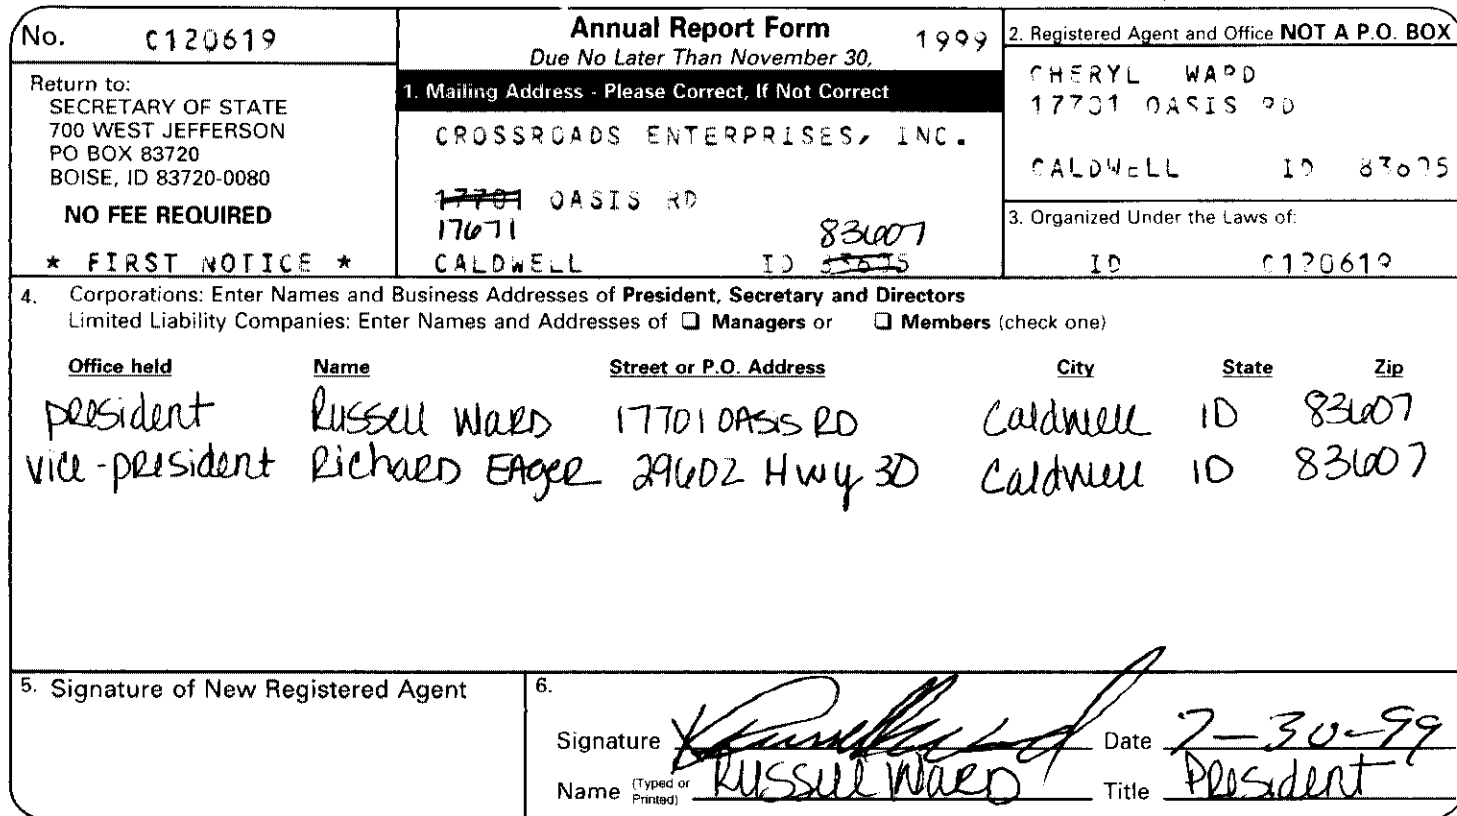 No. C120619
Return to:
SECRETARY OF STATE
700 WEST JEFFERSON
PO BOX 83720
BOISE, ID 83720-0080
NO FEE REQUIRED
* FIRST NOTICE *
Annual Report Form 1999
Due No Later Than November 30,
1. Mailing Address - Please Correct, If Not Correct
CROSSROADS ENTERPRISES, INC.
17701 OASIS RD
17671 83607
CALDWELL ID 83605
2. Registered Agent and Office NOT A P.O. BOX
CHERYL WARD
17701 OASIS RD
CALDWELL ID 83605
3. Organized Under the Laws of:
ID C120619
4. Corporations: Enter Names and Business Addresses of President, Secretary and Directors
Limited Liability Companies: Enter Names and Addresses of ☐ Managers or ☐ Members (check one)
Office held Name Street or P.O. Address City State Zip
president Russell Ward 17701 Oasis RD Caldwell ID 83607
vice-president Richard Eager 29602 Hwy 30 Caldwell ID 83607
5. Signature of New Registered Agent
6.
Signature Date 7-30-99
Name (Typed or Printed) Russell Ward Title President